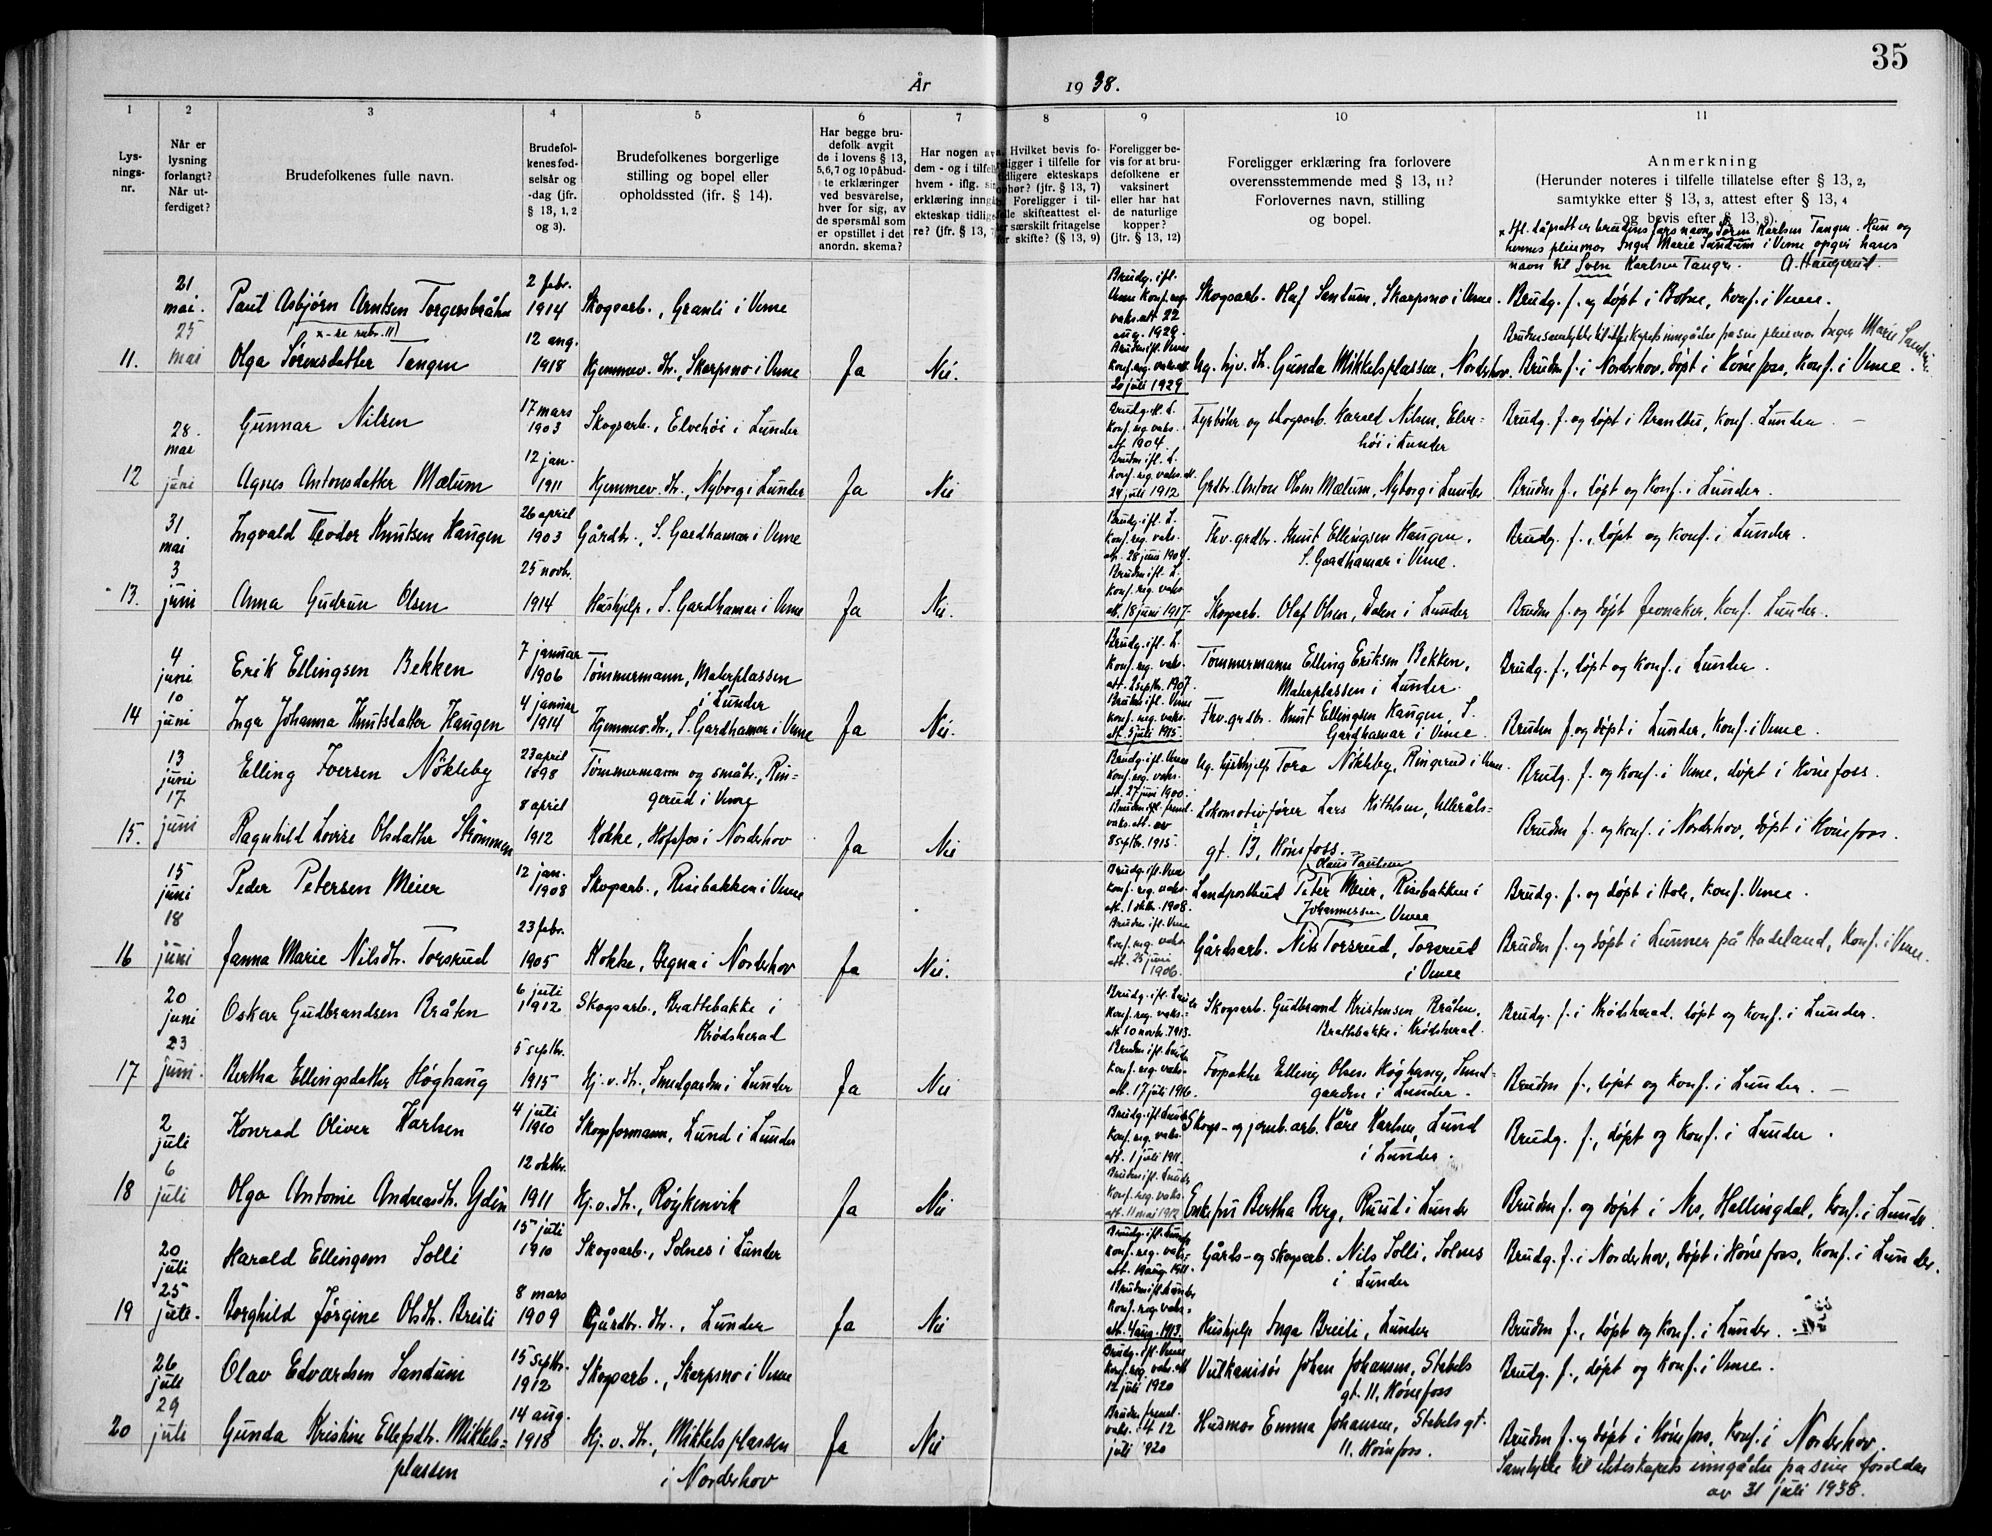 35
År 1938.
1 2 3 4 5 6 7 8 9 10 11
Lys-
nings-
nr.
Når er
lysning
forlangt?
Når ut-
ferdiget?
Brudefolkenes fulle navn.
Brudefol-
kenes fød-
selsår og
-dag (jfr.
§ 13, 1, 2
og 3).
Brudefolkenes borgerlige
stilling og bopel eller
opholdssted (ifr. § 14).
Har begge bru-
defolk avgit
de i lovens § 13,
5,6,7 og 10 påbud-
te erklæringer
ved besvarelse,
hver for sig, av
de spørsmål som
er opstillet i det
anordn. skema?
Har nogen av
dem - og i tilfelle
hvem - iflg.
erklæring inngått
ekteskap tidlige-
re? (jfr. § 13, 7
Hvilket bevis fo-
religger i tilfelle for
tidligere ekteskaps
ophør? (jfr. § 13, 7)
Foreligger i til-
felle skifteattest el-
ler særskilt fritagelse
for skifte? (§ 13, 9)
Foreligger be-
vis for at bru-
defolkene er
vaksinert
eller har hat
de naturlige
kopper?
(jfr. § 13, 12)
Foreligger erklæring fra forlovere
overensstemmende med § 13, 11?
Forlovernes navn, stilling
og bopel.
Anmerkning
(Herunder noteres i tilfelle tillatelse efter § 13, 2,
samtykke efter § 13, 3, attest efter § 13, 4
og bevis efter § 13, 9).
x Ifl. dåpsatt er brudens fars navn Søren Karlsen Tangen. Hun og
hennes pleiemor Inger Marie Sandum i Veme opgir hans
navn til Sven Karlsen Tangen. A. Haugerud.
21
mai.
Paul Asbjørn Arntsen Torgersbråten
2 febr.
1914
Skogsarb., Granli i Veme
Brudg. ifl.
Veme Konf.reg.
vaks.att. 22
aug. 1929.
Skogsarb. Olaf Sandum, Skarpsno i Veme.
Brudg. f. og døpt i Botne, Konf. i Veme.
x - se rubr. 11
Bruden samtykke til ekteskapets inngåelse pa sine pleiemor Inger Marie Sandum.
11.
25
mai
Olga Sørensdatter Tangen
12 aug.
1918
Hjemmev. dt., Skarpsno i Veme
Ja
Nei.
Bruden ifl. Veme
Konf.reg. vaks.att.
20 juli 1929
Ug. hjv. dt. Gunda Mikkelsplassen, Norderhov.
Bruden f. i Norderhov, døpt i Hønefoss, Konf. i Veme
28.
mai
Gunnar Nilsen
17 mars
1903
Skogsarb., Elvehøi i Lunder
Brudg. ifl. L.
Konf.reg. vaks.
att. 1904
Fyrbøter og skogsarb. Harald Nilsen, Elve-
høi i Lunder
Brudg. f. og døpt i Brandbu, Konf. Lunder.
12
juni
Agnes Antonsdatter Mælum
12 jan.
1911
Hjemmev. dt., Nyborg i Lunder
Ja
Nei
Bruden ifl. L.
Konf.reg. vaks.att.
24 juli 1912
Grdbr. Anton Olsen Mælum, Nyborg i Lunder
Bruden f., døpt og Konf. i Lunder.
31
mai
Ingvald Teodor Knutsen Haugen
26 april
1903
Gårdbr., S. Gardhamar i Veme
Brudg. ifl. L.
Konf.reg. vaks.
att. 28 juni 1904.
Fhv. grdbr. Knut Ellingsen Haugen,
S. Gardhamar i Veme.
Brudg. f., døpt og Konf. i Lunder.
13.
3
juni
Anna Gudrun Olsen
25 novbr.
1914
Hushjelp, S. Gardhamar i Veme
Ja
Nei.
Bruden ifl. L.
Konf.reg. vaks.
att. 18 juni 1917.
Skogsarb. Olaf Olsen, Dalen i Lunder
Bruden f. og døpt Jevnaker, Konf. Lunder.
4
juni
Erik Ellingsen Bekken
7 januar
1906
Tømmermann, Malerplassen
i Lunder
Brudg. ifl. L.
Konf.reg. vaks.
att. 2 septbr. 1907.
Tømmermann Elling Eriksen Bekken,
Malerplassen i Lunder.
Brudg. f., døpt og Konf. i Lunder.
14
10
juni
Inga Johanna Knutsdatter Haugen
4 januar
1914
Hjemmev. dt., S. Gardhamar i Veme
Ja
Nei.
Bruden ifl. Veme
Konf.reg. vaks.
att. 5 juli 1915.
Fhv. grdbr. Knut Ellingsen Haugen, S.
Gardhamar i Veme
Bruden f. og døpt i Lunder, Konf. i Veme.
13
juni
Elling Iversen Nøkleby
23 april
1898
Tømmermann og småbr., Rin-
gerud i Veme
Brudg. ifl. Veme
Konf.reg. vaks.
att. 27 juni 1900.
Ug. hushjelp Tora Nøkleby, Ringerud i Veme.
Brudg. f. og Konf. i Veme, døpt i Hønefoss.
15.
17
juni
Ragnhild Lovise Olsdatter Strømmen
8 april
1912
Kokke, Hofsfos i Norderhov
Ja
Nei
Bruden ifl. freml.
vaks.att. av
8 septbr. 1915.
Lokomotivfører Lars Kittelsen, Ulleråls-
gt. 13, Hønefoss.
Bruden f. og Konf. i Norderhov, døpt i Hønefoss.
15
juni
Peder Petersen Meier
12 jan.
1908
Skogsarb., Risebakken i Veme
Brudg. ifl. Veme
Konf.reg. vaks.
att. 1 oktbr. 1908.
Claus Paulsen
Landpostbud Peter Meier, Risebakken i
Veme
Brudg. f. og døpt i Hole, Konf. Veme.
16
18
juni
Janna Marie Nilsdtr. Torsrud
23 febr.
1905
Kokke, Begna i Norderhov
Ja
Nei.
Bruden ifl. Veme
Konf.reg. vaks.
att. 25 juni
1906.
Johannessen
Gårdsarb. Nils Torsrud, Torsrud
i Veme
Bruden f. og døpt i Lunner på Hadeland, Konf. i Veme.
20
juni
Oskar Gudbrandsen Bråten
6 juli
1912
Skogsarb., Brattebakke i
Krødsherad
Brudg. ifl. Lunder
Konf.reg. vaks.
att. 10 novbr. 1913.
Skogsarb. Gudbrand Kristensen Bråten,
Brattebakke i Krødsherad.
Brudg. f. i Krødsherad, døpt og Konf. i Lunder.
17
23
juni.
Bertha Ellingsdatter Høghaug
5 septbr.
1915
Hj. v. dt., Smedgarden i Lunder
Ja
Nei
Bruden ifl. Lunder
Konf.reg. vaks.
att. 17 juli 1916.
Forpakter Elling Olsen Høghaug, Smed-
garden i Lunder.
Bruden f., døpt og Konf. i Lunder.
2
juli
Konrad Oliver Karlsen
4 juli
1910
Skogsformann, Lund i Lunder
Brudg. ifl. Lunder
Konf.reg. vaks.
att. 1 juli 1911.
Skogs- og jernb.arb. Kåre Karlsen, Lund
i Lunder.
Brudg. f., døpt og Konf. i Lunder.
18
6
juli
Olga Antonie Andreasdt. Gden
12 oktbr.
1911
Hj. v. dt., Røykenvik
Ja
Nei
Bruden ifl. Lunder
Konf.reg. vaks.
att. 11 mai 1912
Enkefru Bertha Berg, Ruud i Lunder
Bruden f. og døpt i Nes, Hallingdal, Konf. i Lunder.
20
juli
Harald Ellingsen Solli
15 juli
1910
Skogsarb., Solnes i Lunder
Brudg. ifl. Lunder
Konf.reg. vaks.
att. 19 aug. 1911.
Gårds- og skogsarb. Nils Solli, Solnes
i Lunder
Brudg. f. i Norderhov, døpt i Hønefoss, Konf. i Lunder.
19
25
juli.
Borghild Jørgine Olsdt. Breili
8 mars
1909
Gårdbr. dt., Lunder
Ja
Nei
Bruden ifl. Lunder
Konf.reg. vaks.
att. 4 aug. 1913.
Hushjelp Inga Breili, Lunder
Bruden f., døpt og Konf. i Lunder.
26
juli
Olav Edvardsen Sandum
15 septbr.
1912
Skogsarb., Skarpsno i Veme
Brudg. ifl. Veme
Konf.reg. vaks.att.
12 juli 1920
Vulkanisør Johan Johansen, Stabels
gt. 11, Hønefoss
Brudg. f., døpt og Konf. i Veme.
20
29
juli
Gunda Kristine Ellefsdt. Mikkels-
plassen
14 aug.
1918
Hj. v. dt., Mikkelsplassen
i Norderhov
Ja
Nei
Bruden freml.
vaks.att. 12
juli 1920
Husmor Emma Johansen, Stabels gt.
11. Hønefoss.
Bruden f. og døpt i Hønefoss, Konf. i Norderhov.
Samtykke til ekteskapets inngåelse pa sine foreldre
av 31 juli 1938.